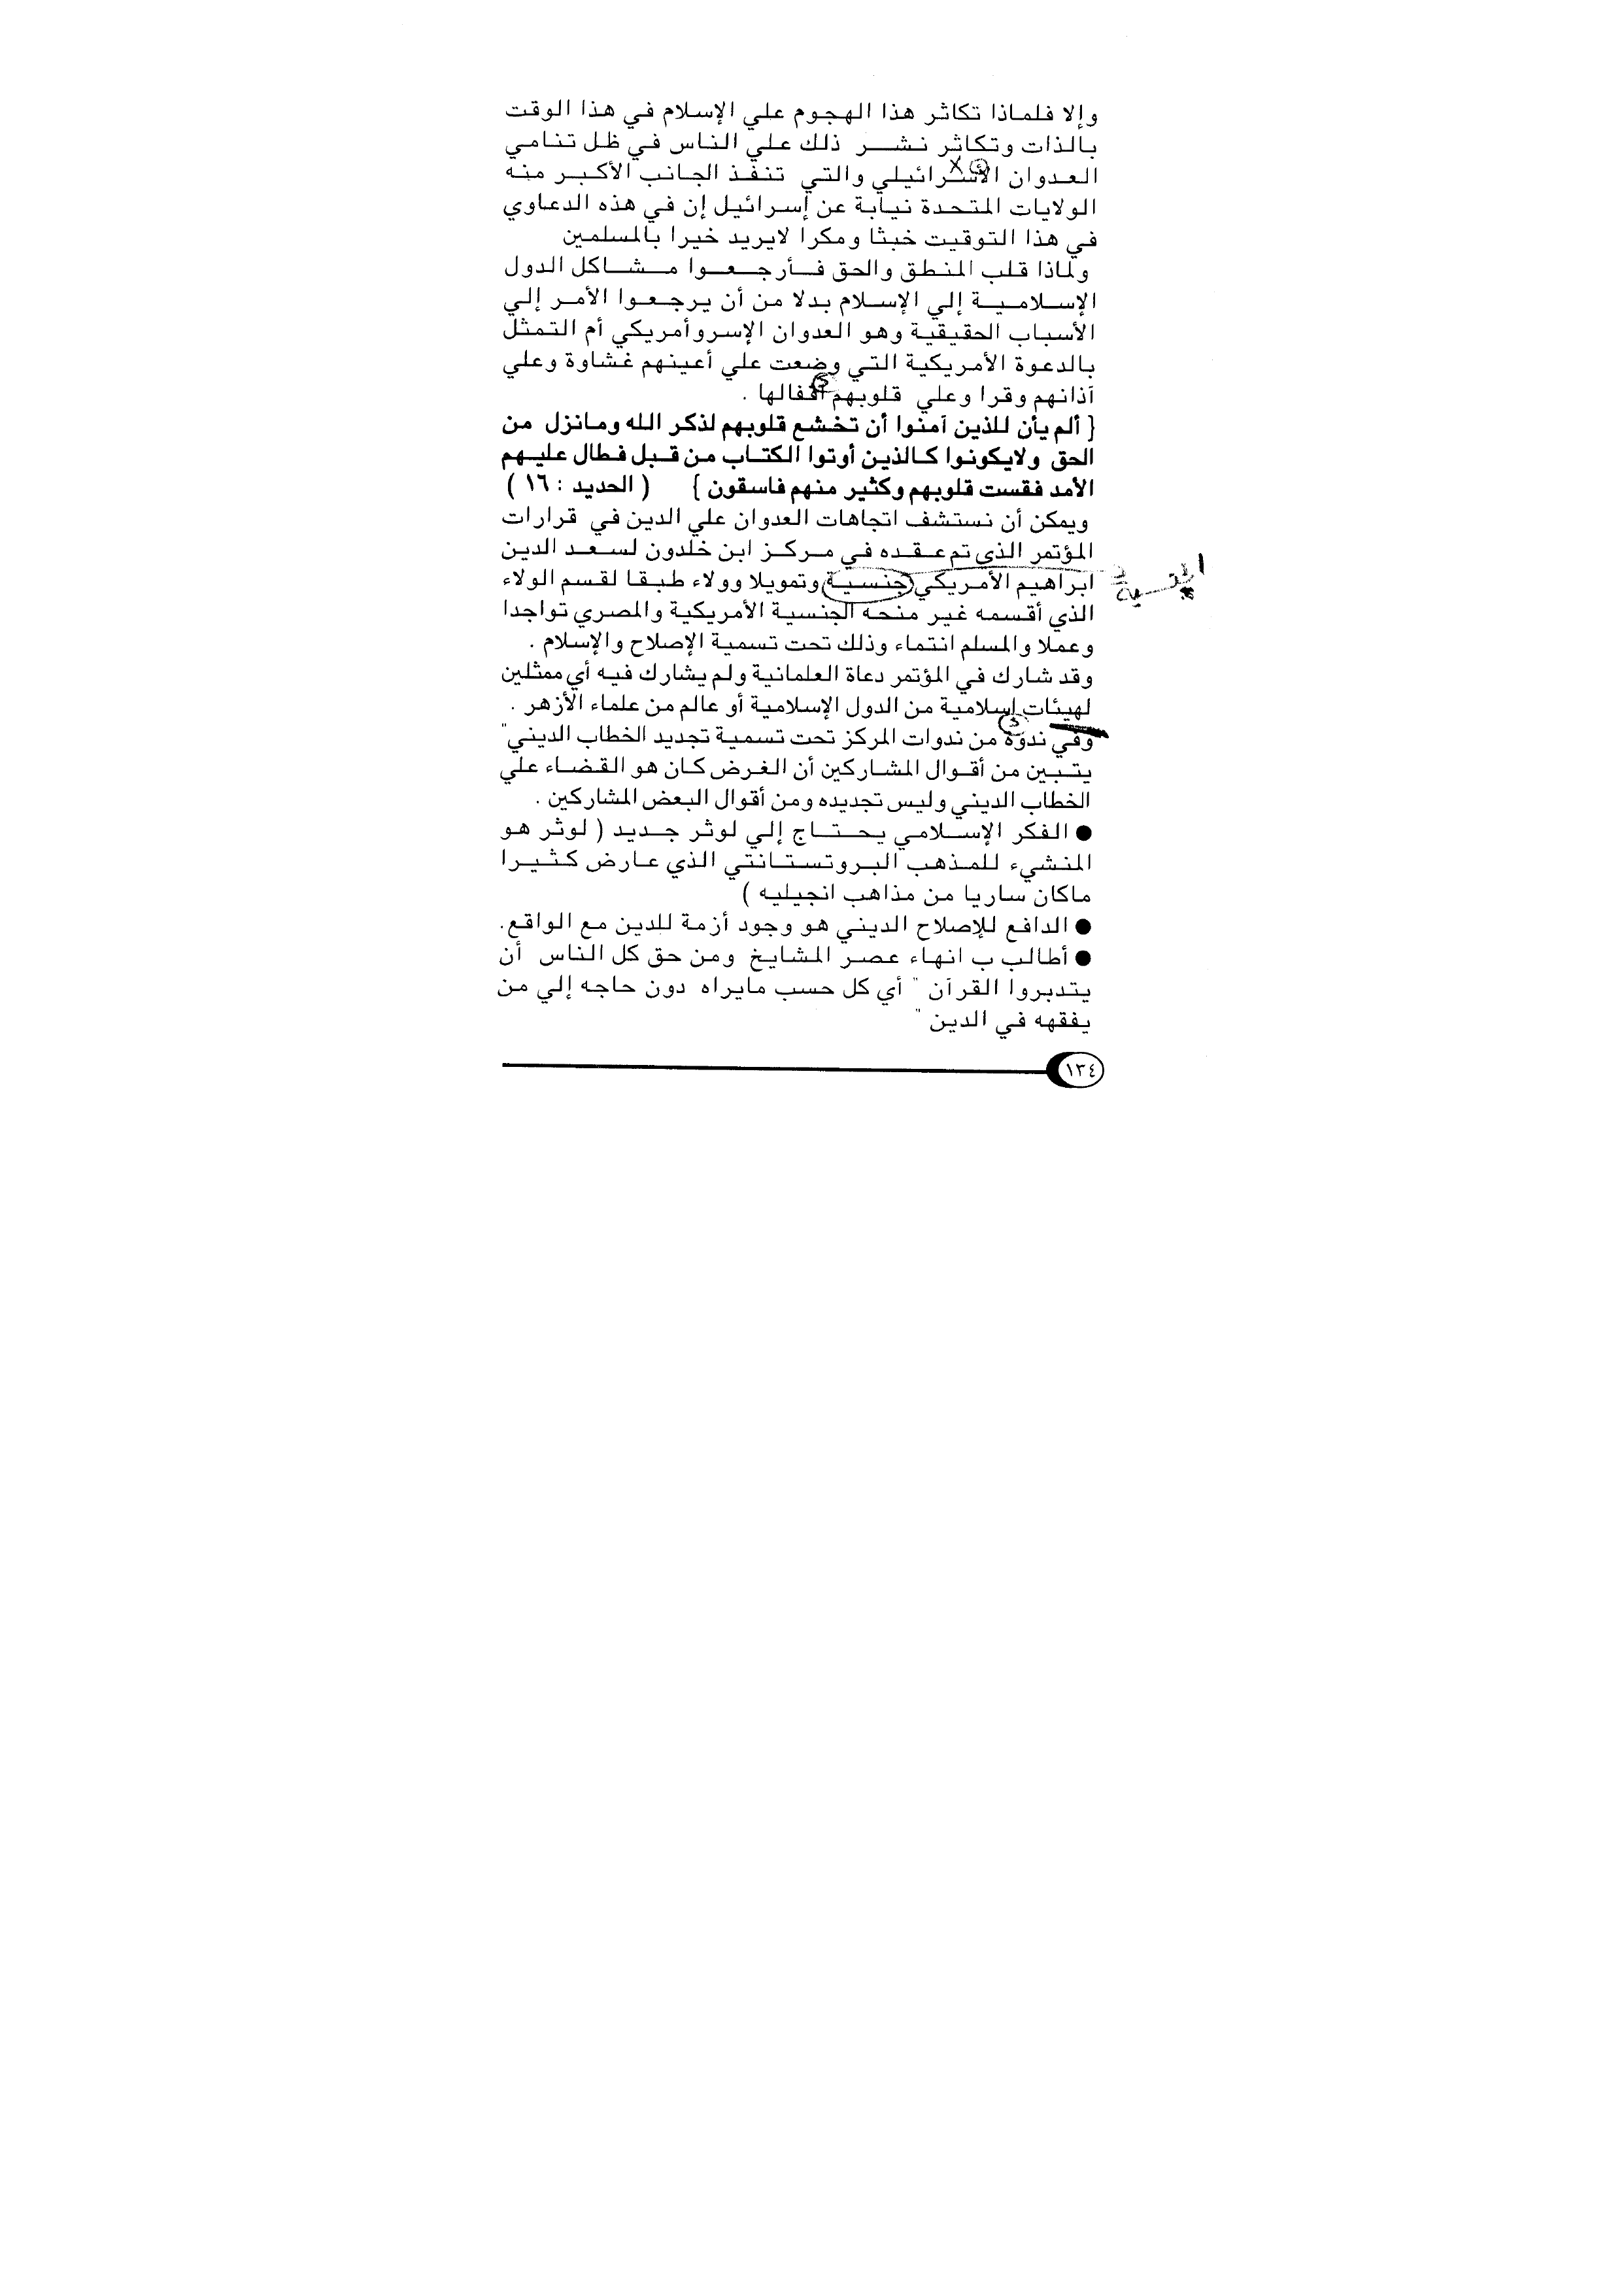 وإلا فلماذا تكاثر هذا الهجوم علي الإسلام في هذا الوقت
بالذات وتكاثر نشر ذلك علي الناس في ظل تنامي
العدوان الأسرائيلي والتي تنفذ الجانب الأكبر منه
الولايات المتحدة نيابة عن إسرائيل إن في هذه الدعاوي
في هذا التوقيت خبثا ومكرا لايريد خيرا بالمسلمين
ولماذا قلب المنطق والحق فأرجعوا مشاكل الدول
الإسلامية إلي الإسلام بدلا من أن يرجعوا الأمر إلي
الأسباب الحقيقية وهو العدوان الإسروأمريكي أم التمثل
بالدعوة الأمريكية التي وضعت علي أعينهم غشاوة وعلي
آذانهم وقرا وعلي قلوبهم أقفالها .
{ ألم يأن للذين آمنوا أن تخشع قلوبهم لذكر الله ومانزل من
الحق ولايكونوا كالذين أوتوا الكتاب من قبل فطال عليهم
الأمد فقست قلوبهم وكثير منهم فاسقون } ( الحديد : ١٦ )
ويمكن أن نستشف اتجاهات العدوان علي الدين في قرارات
المؤتمر الذي تم عقده في مركز ابن خلدون لسعد الدين
ابراهيم الأمريكي جنسية وتمويلا وولاء طبقا لقسم الولاء
الذي أقسمه غير منحه الجنسية الأمريكية والمصري تواجدا
وعملا والمسلم انتماء وذلك تحت تسمية الإصلاح والإسلام .
وقد شارك في المؤتمر دعاة العلمانية ولم يشارك فيه أي ممثلين
لهيئات إسلامية من الدول الإسلامية أو عالم من علماء الأزهر .
وفي ندوة من ندوات المركز تحت تسمية تجديد الخطاب الديني"
يتبين من أقوال المشاركين أن الغرض كان هو القضاء علي
الخطاب الديني وليس تجديده ومن أقوال البعض المشاركين .
● الفكر الإسلامي يحتاج إلي لوثر جديد ( لوثر هو
المنشيء للمذهب البروتستانتي الذي عارض كثيرا
ماكان ساريا من مذاهب انجيليه )
● الدافع للإصلاح الديني هو وجود أزمة للدين مع الواقع.
● أطالب ب انهاء عصر المشايخ ومن حق كل الناس أن
يتدبروا القرآن " أي كل حسب مايراه دون حاجه إلي من
يفقهه في الدين "
١٣٤